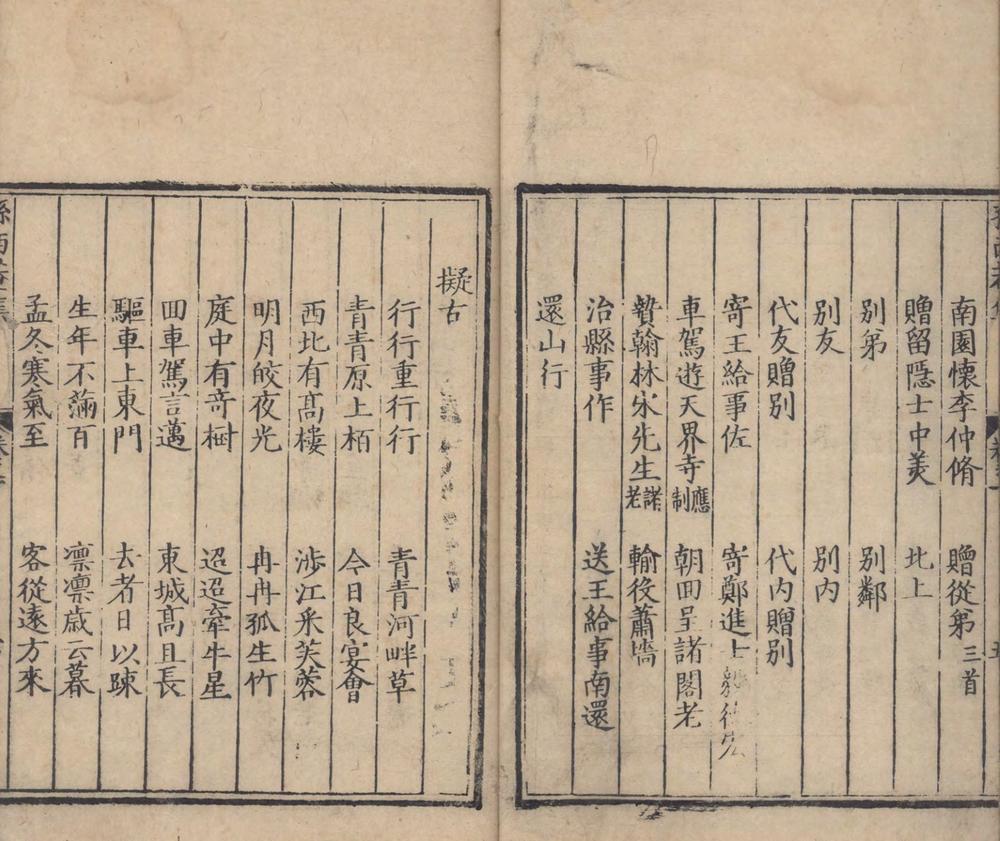 南園懷李仲脩 贈從弟三首
贈留隱士中美 北上
別弟 別鄰
別友 別内
代友贈別 代内贈別
寄王給事佐 寄鄭進士
車駕遊天界寺應制 朝囬呈諸閣老
贄翰林宋先生諸老 輸役蕭墻
治縣事作 送王給事南還
還山行
擬古
行行重行行 青青河畔草
青青原上栢 今日良宴會
西北有髙樓 渉江采芙蓉
明月皎夜光 冉冉孤生竹
庭中有竒樹 迢迢牽牛星
囬車駕言邁 東城髙且長
驅車上東門 去者日以踈
生年不滿百 凛凛歳云暮
孟冬寒氣至 客從遠方來